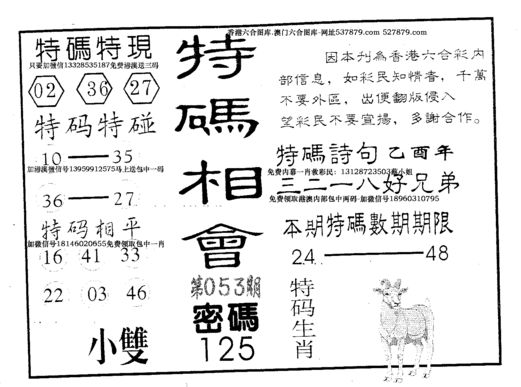 香港六合图库.澳门六合图库-网址537879.com 527879.com
特碼特現
只要加微信13328535187免费赠送三码
02 36 27
特码特碰
10——35
加港澳微信号13959912575马上送包中一码
36——27
特码相平
加微信号18146020655免费领取包中一肖
16 41 33
22 03 46
小雙
特碼相會
第053期
密碼
125
因本刋為香港六合彩内
部信息，如彩民知情者，千萬
不要外區，出便翻版侵入
望彩民不要宣揚，多謝合作。
特碼詩句 乙酉年
免费内幕一肖救彩民：13128723503蔡小姐
三二一八好兄弟
免费领取港澳内部包中两码 加微信号18960310795
本期特碼數期期限
24————48
特码生肖